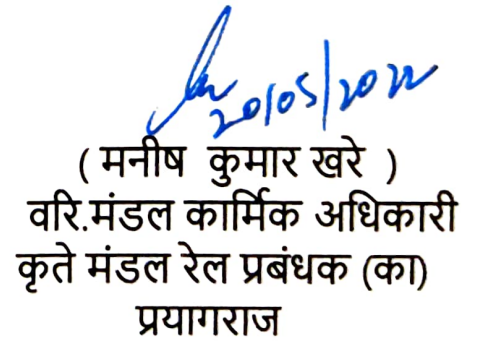 20/05/2022
( मनीष कुमार खरे )
वरि.मंडल कार्मिक अधिकारी
कृते मंडल रेल प्रबंधक (का)
प्रयागराज